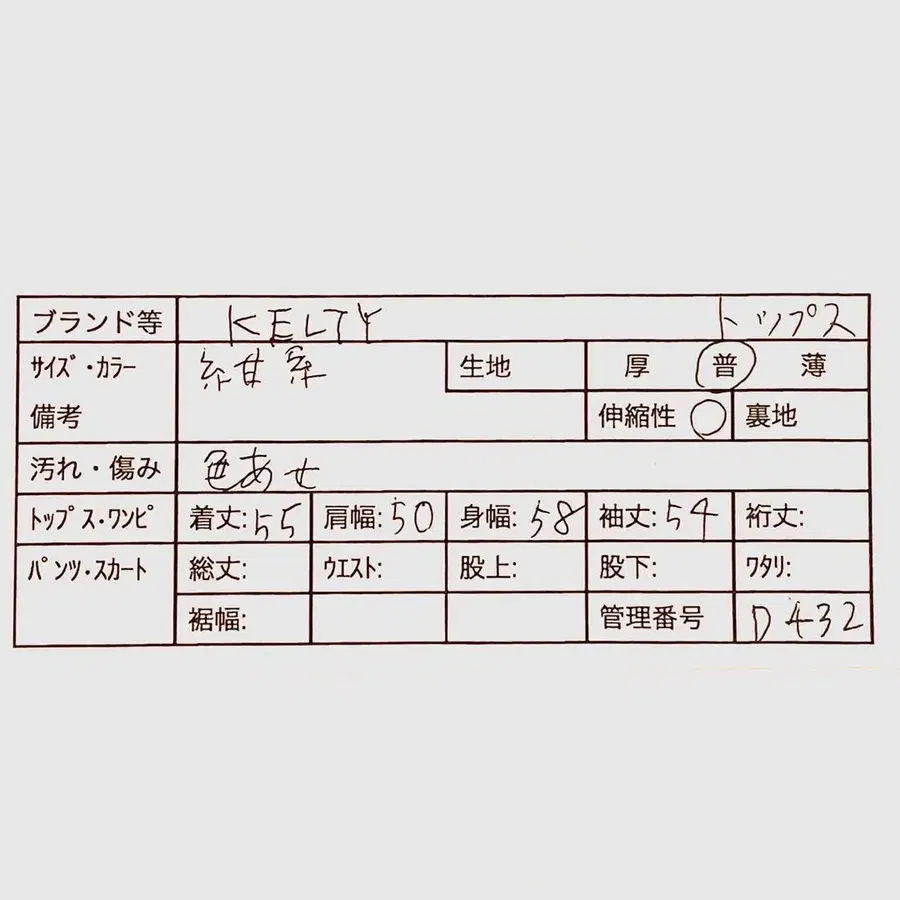 ブランド等 KELTY トップス
サイズ・カラー 紺系 生地 厚 普 薄
備考 伸縮性 ○ 裏地
汚れ・傷み 色あせ
トップス・ワンピ 着丈:55 肩幅:50 身幅:58 袖丈:54 裄丈:
パンツ・スカート 総丈: ウエスト: 股上: 股下: ワタリ:
裾幅: 管理番号 D432